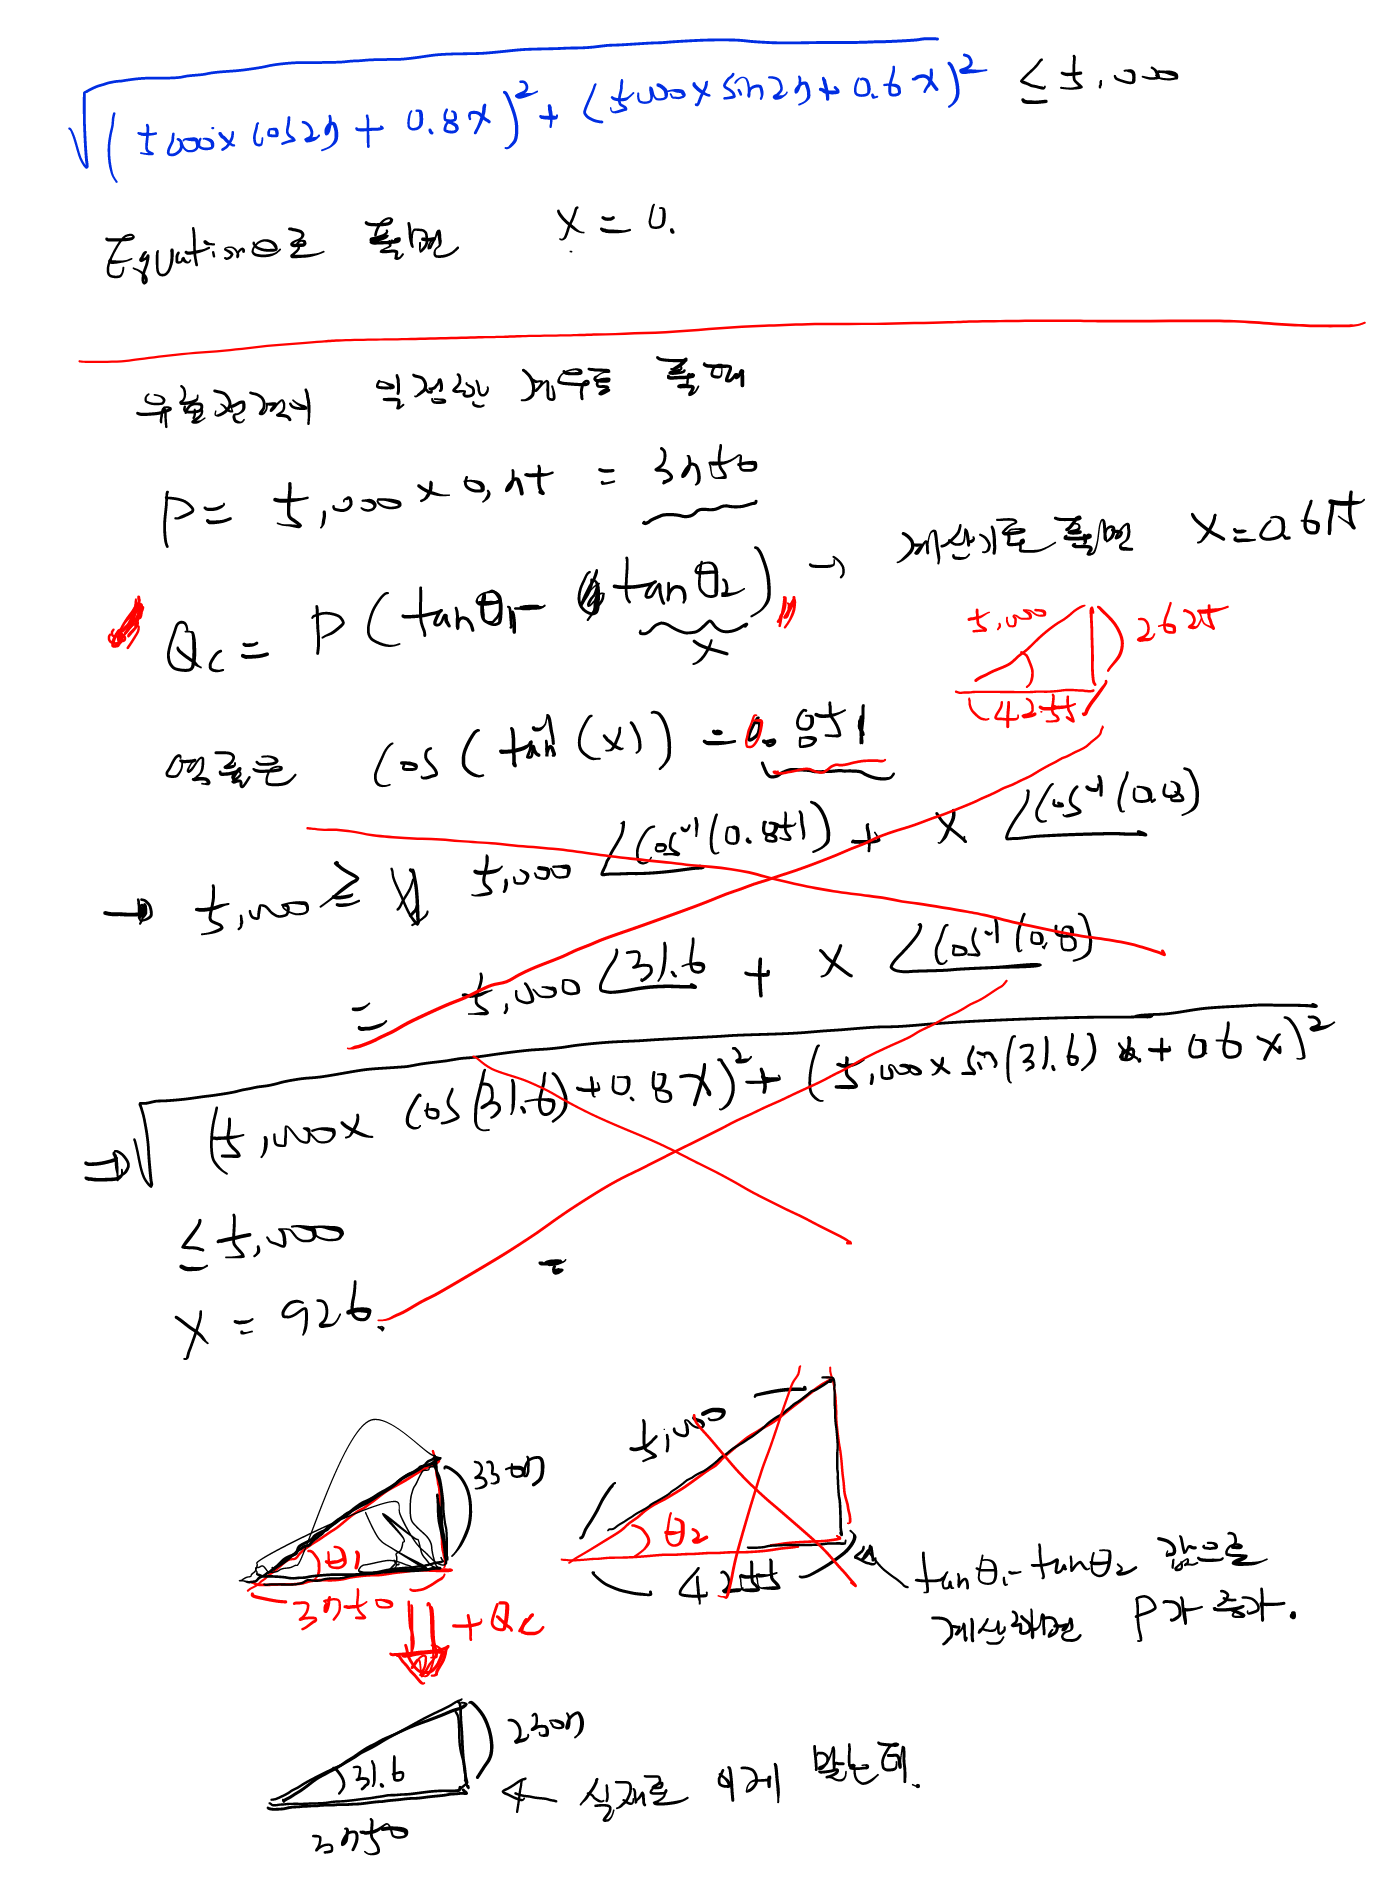 √(5000x cos27 + 0.8x)² + (5000x sin27 + 0.6x)² ≤ 5,000
Equation으로 풀면 x = 0.
유효전력이 일정한 경우로 풀 때
P = 5,000 × 0.75 = 3750
Qc = P(tanθ₁ - tanθ₂) → 계산기로 풀면 x = 0.615
x
5,000
2625
4255
역률은 cos(tan⁻¹(x)) = 0.851
→ 5,000 ≥ 5,000 ∠cos⁻¹(0.851) + x ∠cos⁻¹(0.8)
= 5,000 ∠31.6 + x ∠cos⁻¹(0.8)
⇒ √(5,000x cos(31.6) + 0.8x)² + (5,000x sin(31.6) + 0.6x)²
≤ 5,000
x = 926.
θ₁
3307
3750
+Qc
5,000
θ₂
4255
tanθ₁ - tanθ₂ 값으로
계산하면 P가 증가.
31.6
2307
3750
← 실제로 이게 맞는데.